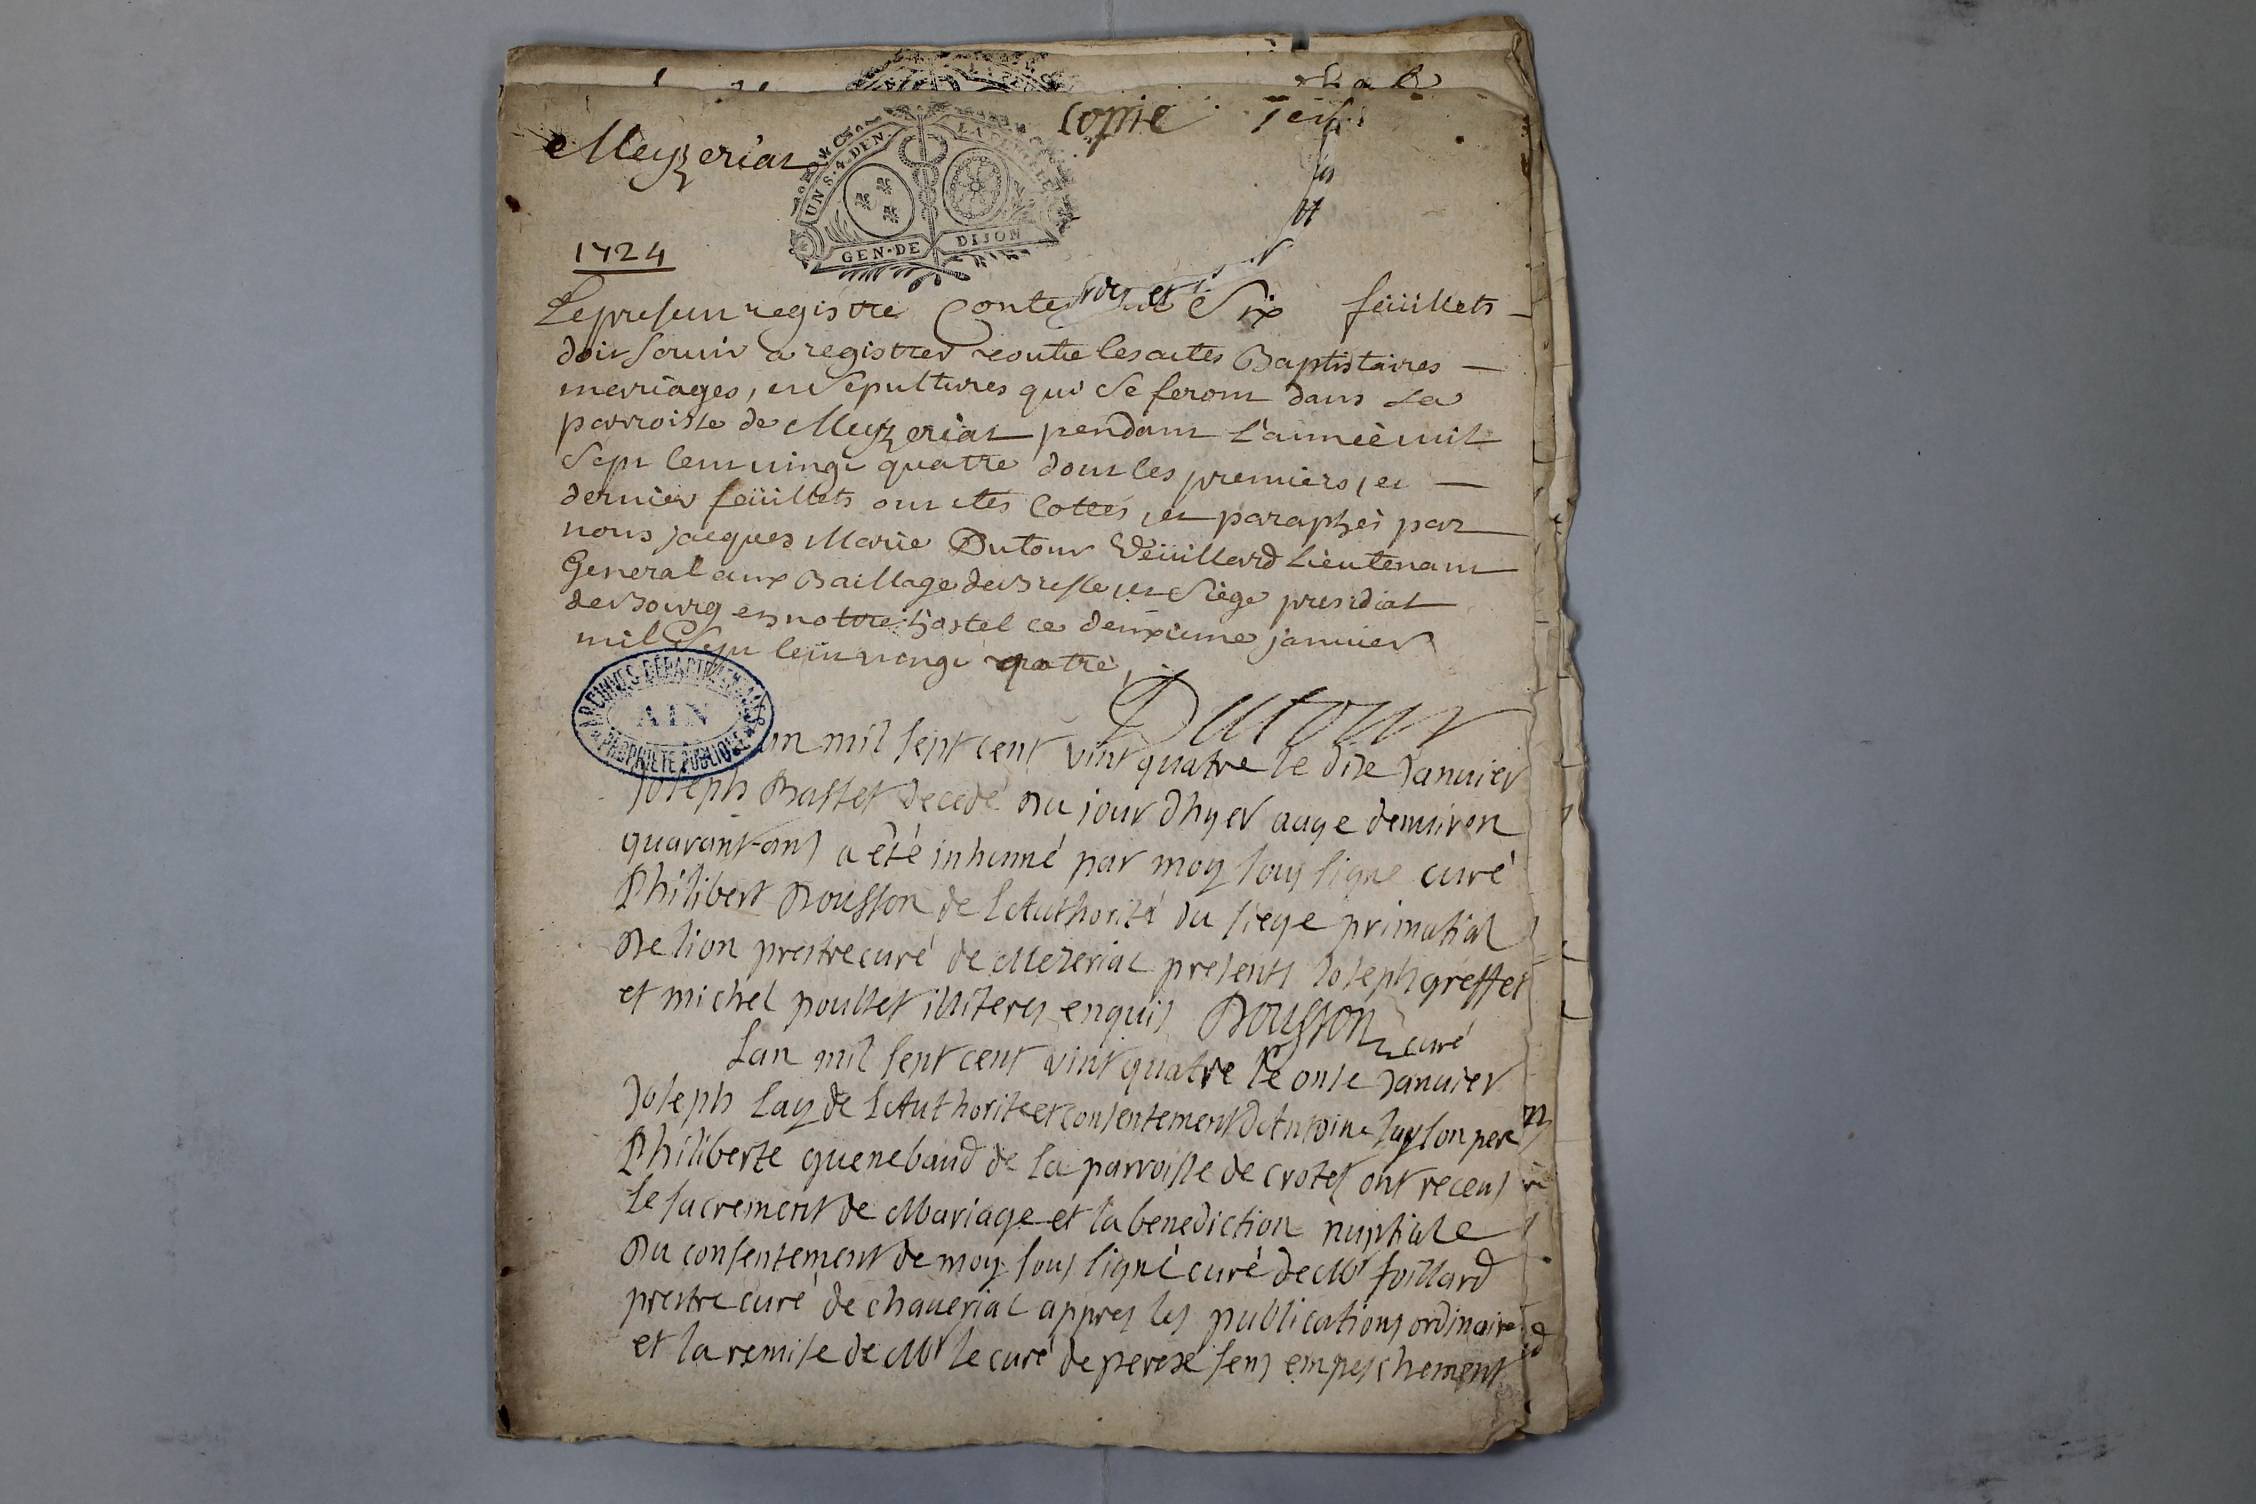 Copie
Meyzeriat
UN S. 4. DEN.
GEN·DE DIJON
1724
Le presen registre Conte Six feüillets
doit servir a registrer toutte les actes Baptistaires
mariages, et Sepultures qui Se feront dans La
parroisse de Meyzeriat pendant l'année mil
Sept cent vingt quatre dont les premiers, et
dernier feüillets ont etes Cottés, et paraphés par
nous jacques Marie Dutour Veüillard Lieutenant
General aux Baillage de Bresse et Siege presidial
de Bourg en notre hostel ce deuxieme janvier
mil Sept cent vingt quatre,
Dutour
ARCHIVES DÉPARTEMENTALES
AIN
PROPRIÉTÉ PUBLIQUE
Lan mil sept cent vint quatre le dise Janvier
Joseph Bastet decedé du jour dhyer aage denuiron
quarant ans a été inhumé par moy sous signe curé
Philibert Dousson de l'Authorité du siege primatial
de lion prestre curé de Mezeriat presents Joseph greffet
et michel poultet illiteres enquis Dousson curé
Lan mil sept cent vint quatre le onse Janvier
Joseph Lay de l'Authorite et consentement d'Antoine Lay son pere
Philiberte quenebaud de la parroisse de crotet ont receus
le sacrement de Mariage et la benediction nuptiale
du consentement de moy sous signé curé de Mr foillard
prestre curé de chaueriat appres les publications ordinaire
et la remise de Mr le curé de perex sens empeschement